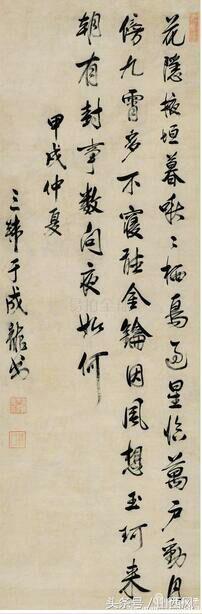 花隱掖垣暮啾〻栖鳥過星臨萬戶動月
傍九霄多不寢聽金鑰因風想玉珂来
朝有封事數問夜如何
甲戌仲夏
三韓于成龍書
头条号/山西网